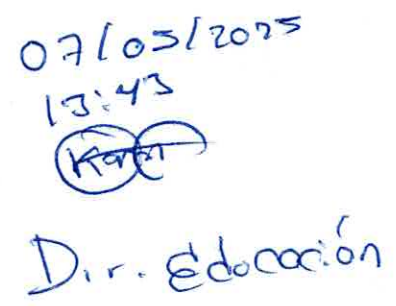 07/05/2025
13:43
Karen
Dir. Educación